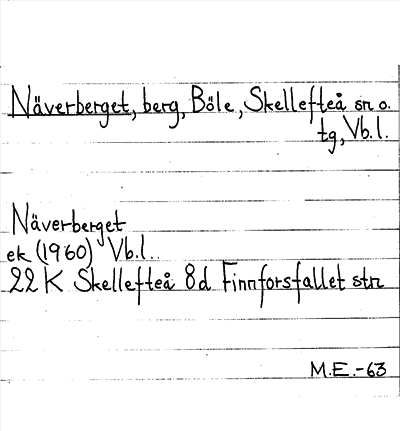 Näverberget, berg, Böle, Skellefteå sn o.
tg, Vb.l.
Näverberget
ek (1960) Vb.l..
22 K Skellefteå 8d Finnforsfallet str
M.E.-63